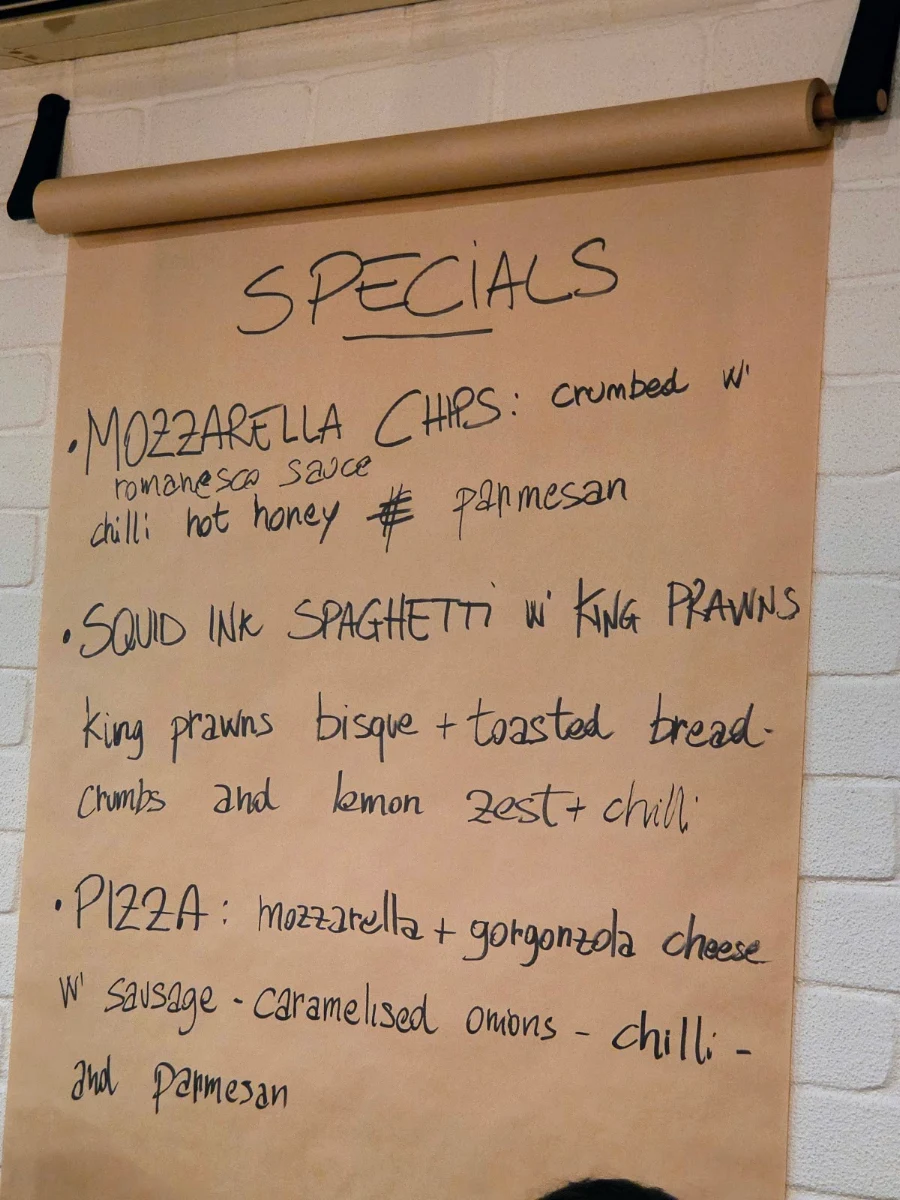 SPECIALS
• MOZZARELLA CHIPS: crumbed w'
romanesco sauce
chilli hot honey parmesan
• SQUID INK SPAGHETTI w' KING PRAWNS
king prawns bisque + toasted bread-
crumbs and lemon zest + chilli
• PIZZA: mozzarella + gorgonzola cheese
w' sausage - caramelised onions - chilli -
and parmesan